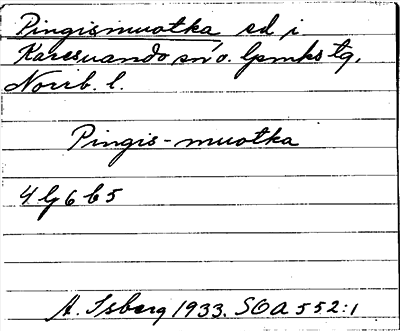 Pingismuotka sd i
Karesuando sn o. lpmks tg,
Norrb. l.
Pingis-muotka
4 G 6 b 5
A. Isberg 1933. SOA 552:1